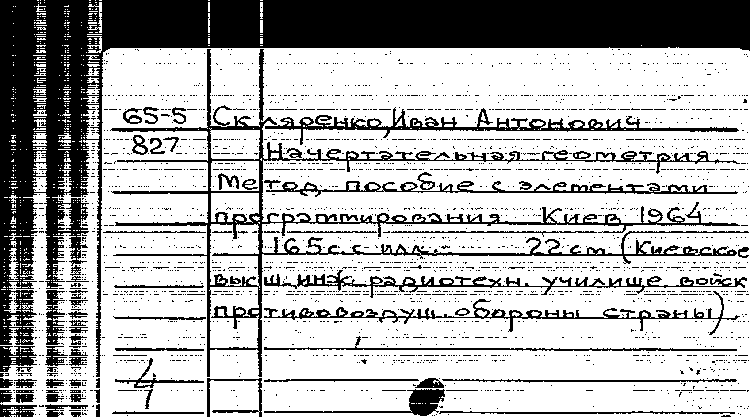 65-5 Скляренко, Иван Антонович
827 Начертательная геометрия.
Метод. пособие с элементами
программирования. Киев, 1964
165 с. с илл.- 22 см. (Киевское
высш. инж. радиотехн. училище войск
противовоздуш. обороны страны).
4